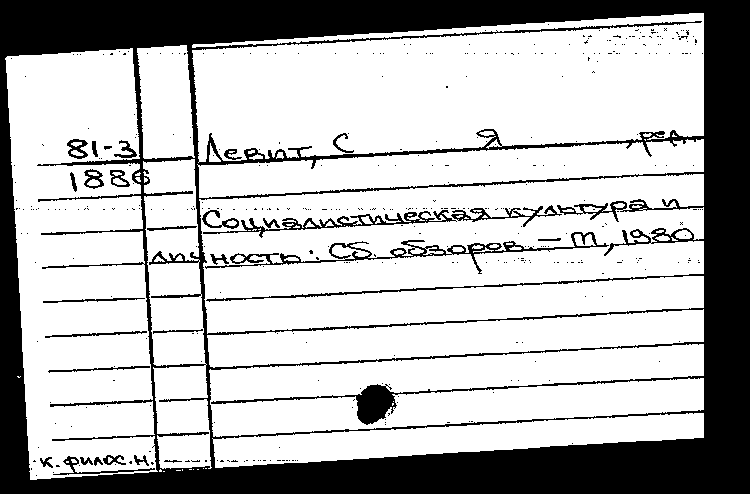 81-3
1886
Левит, С Я , ред.
Социалистическая культура и
личность: Сб обзоров. – М, 1980
к. филос. н.